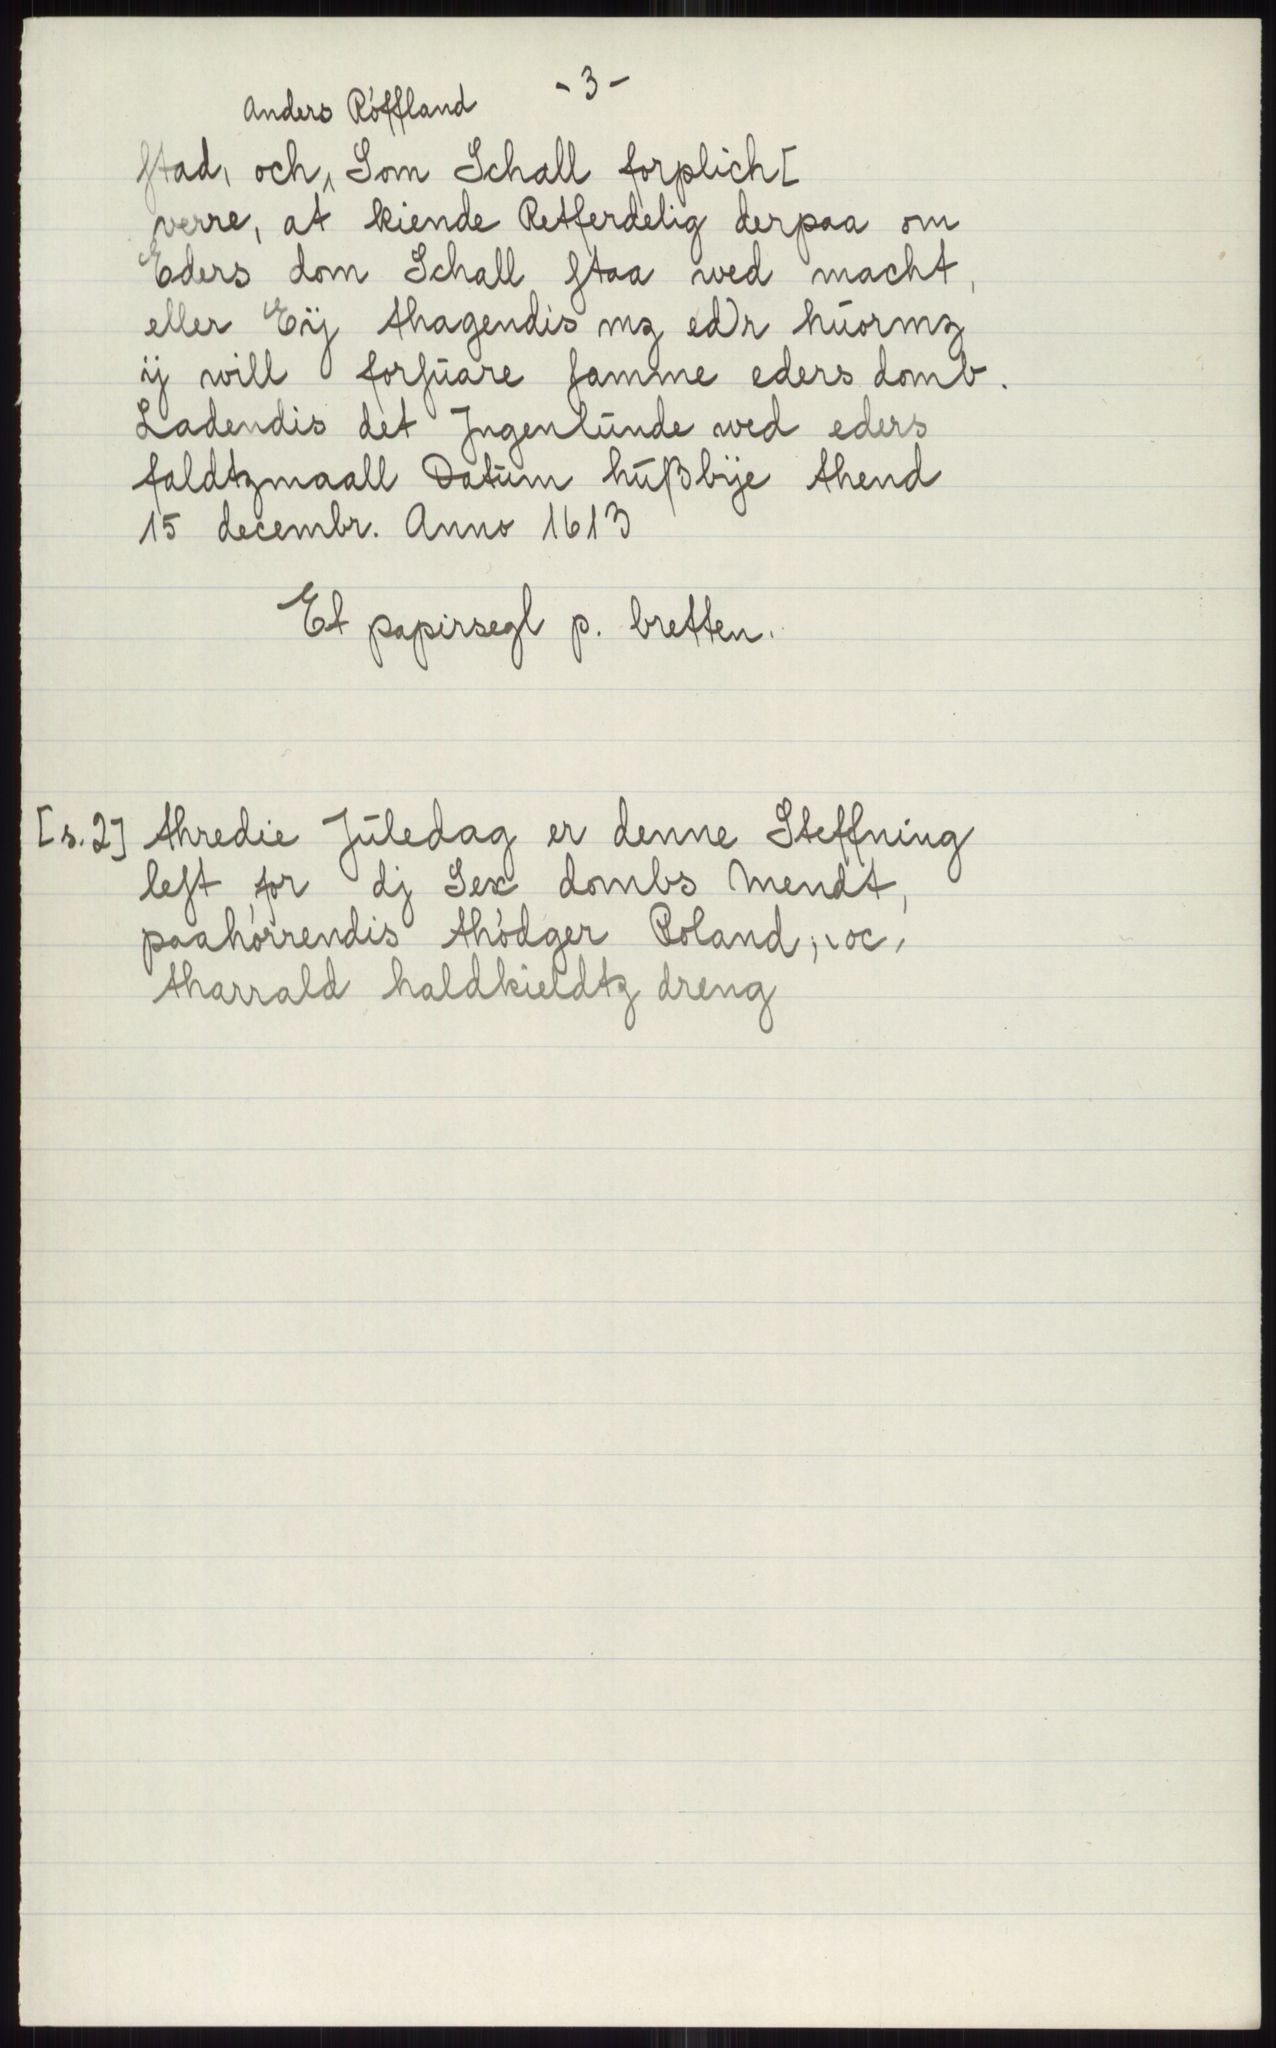 - 3 -
Anders Röffland
stad, och, Som Schall forplich[
verre, at kiende Retferdelig derpaa om
Eders dom Schall staa wed macht,
eller Eij thagendis mz ed)r huormz
ij will forsuare samme eders domb.
Ladendis det Jngenlunde wed eders
faldtzmaall Datum hußbÿe thend
15 decembr. Anno 1613
Et papirsegl p. bretten.
[s.2] thredie Juledag er denne Steffning
lest for dj Sex dombs mendt,
paahörrendis thödger Roland, oc,
tharrald haldkieldtz dreng